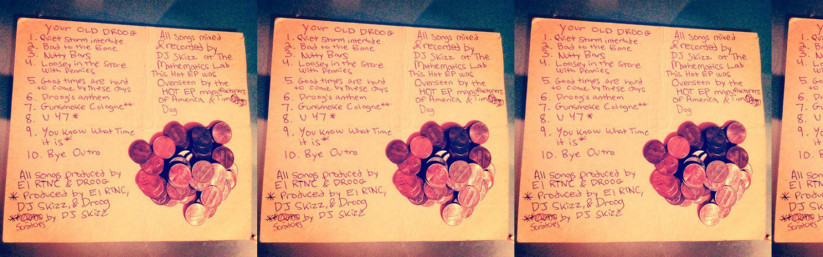 Your OLD DROOG
1. Quiet Storm interlude
2. Bad to the Bone
3. Nutty Bars
4. Loosey in the Store
with Pennies
5. Good times are hard
to come by these days
6. Droog's anthem
7. Gunsmoke Cologne**
8. U 47*
9. You Know What Time
it is*
10. Bye Outro
All songs produced by
El RTNC & DROOG
* Produced by El RTNC,
DJ Skizz, & Droog
** by DJ Skizz
Scratches
All Songs mixed
& recorded by
DJ Skizz at The
Mathematics Lab
This Hot EP was
Overseen by the
HOT EP
of America &
Dog
Your OLD DROOG
1. Quiet Storm interlude
2. Bad to the Bone
3. Nutty Bars
4. Loosey in the Store
with Pennies
5. Good times are hard
to come by these days
6. Droog's anthem
7. Gunsmoke Cologne**
8. U 47*
9. You Know What Time
it is*
10. Bye Outro
All songs produced by
El RTNC & DROOG
* Produced by El RTNC,
DJ Skizz, & Droog
** by DJ Skizz
Scratches
All Songs mixed
& recorded by
DJ Skizz at The
Mathematics Lab
This Hot EP was
Overseen by the
HOT EP
of America &
Dog
Your OLD DROOG
1. Quiet Storm interlude
2. Bad to the Bone
3. Nutty Bars
4. Loosey in the Store
with Pennies
5. Good times are hard
to come by these days
6. Droog's anthem
7. Gunsmoke Cologne**
8. U 47*
9. You Know What Time
it is*
10. Bye Outro
All songs produced by
El RTNC & DROOG
* Produced by El RTNC,
DJ Skizz, & Droog
** by DJ Skizz
Scratches
All Songs mixed
& recorded by
DJ Skizz at The
Mathematics Lab
This Hot EP was
Overseen by the
HOT EP
of America &
Dog